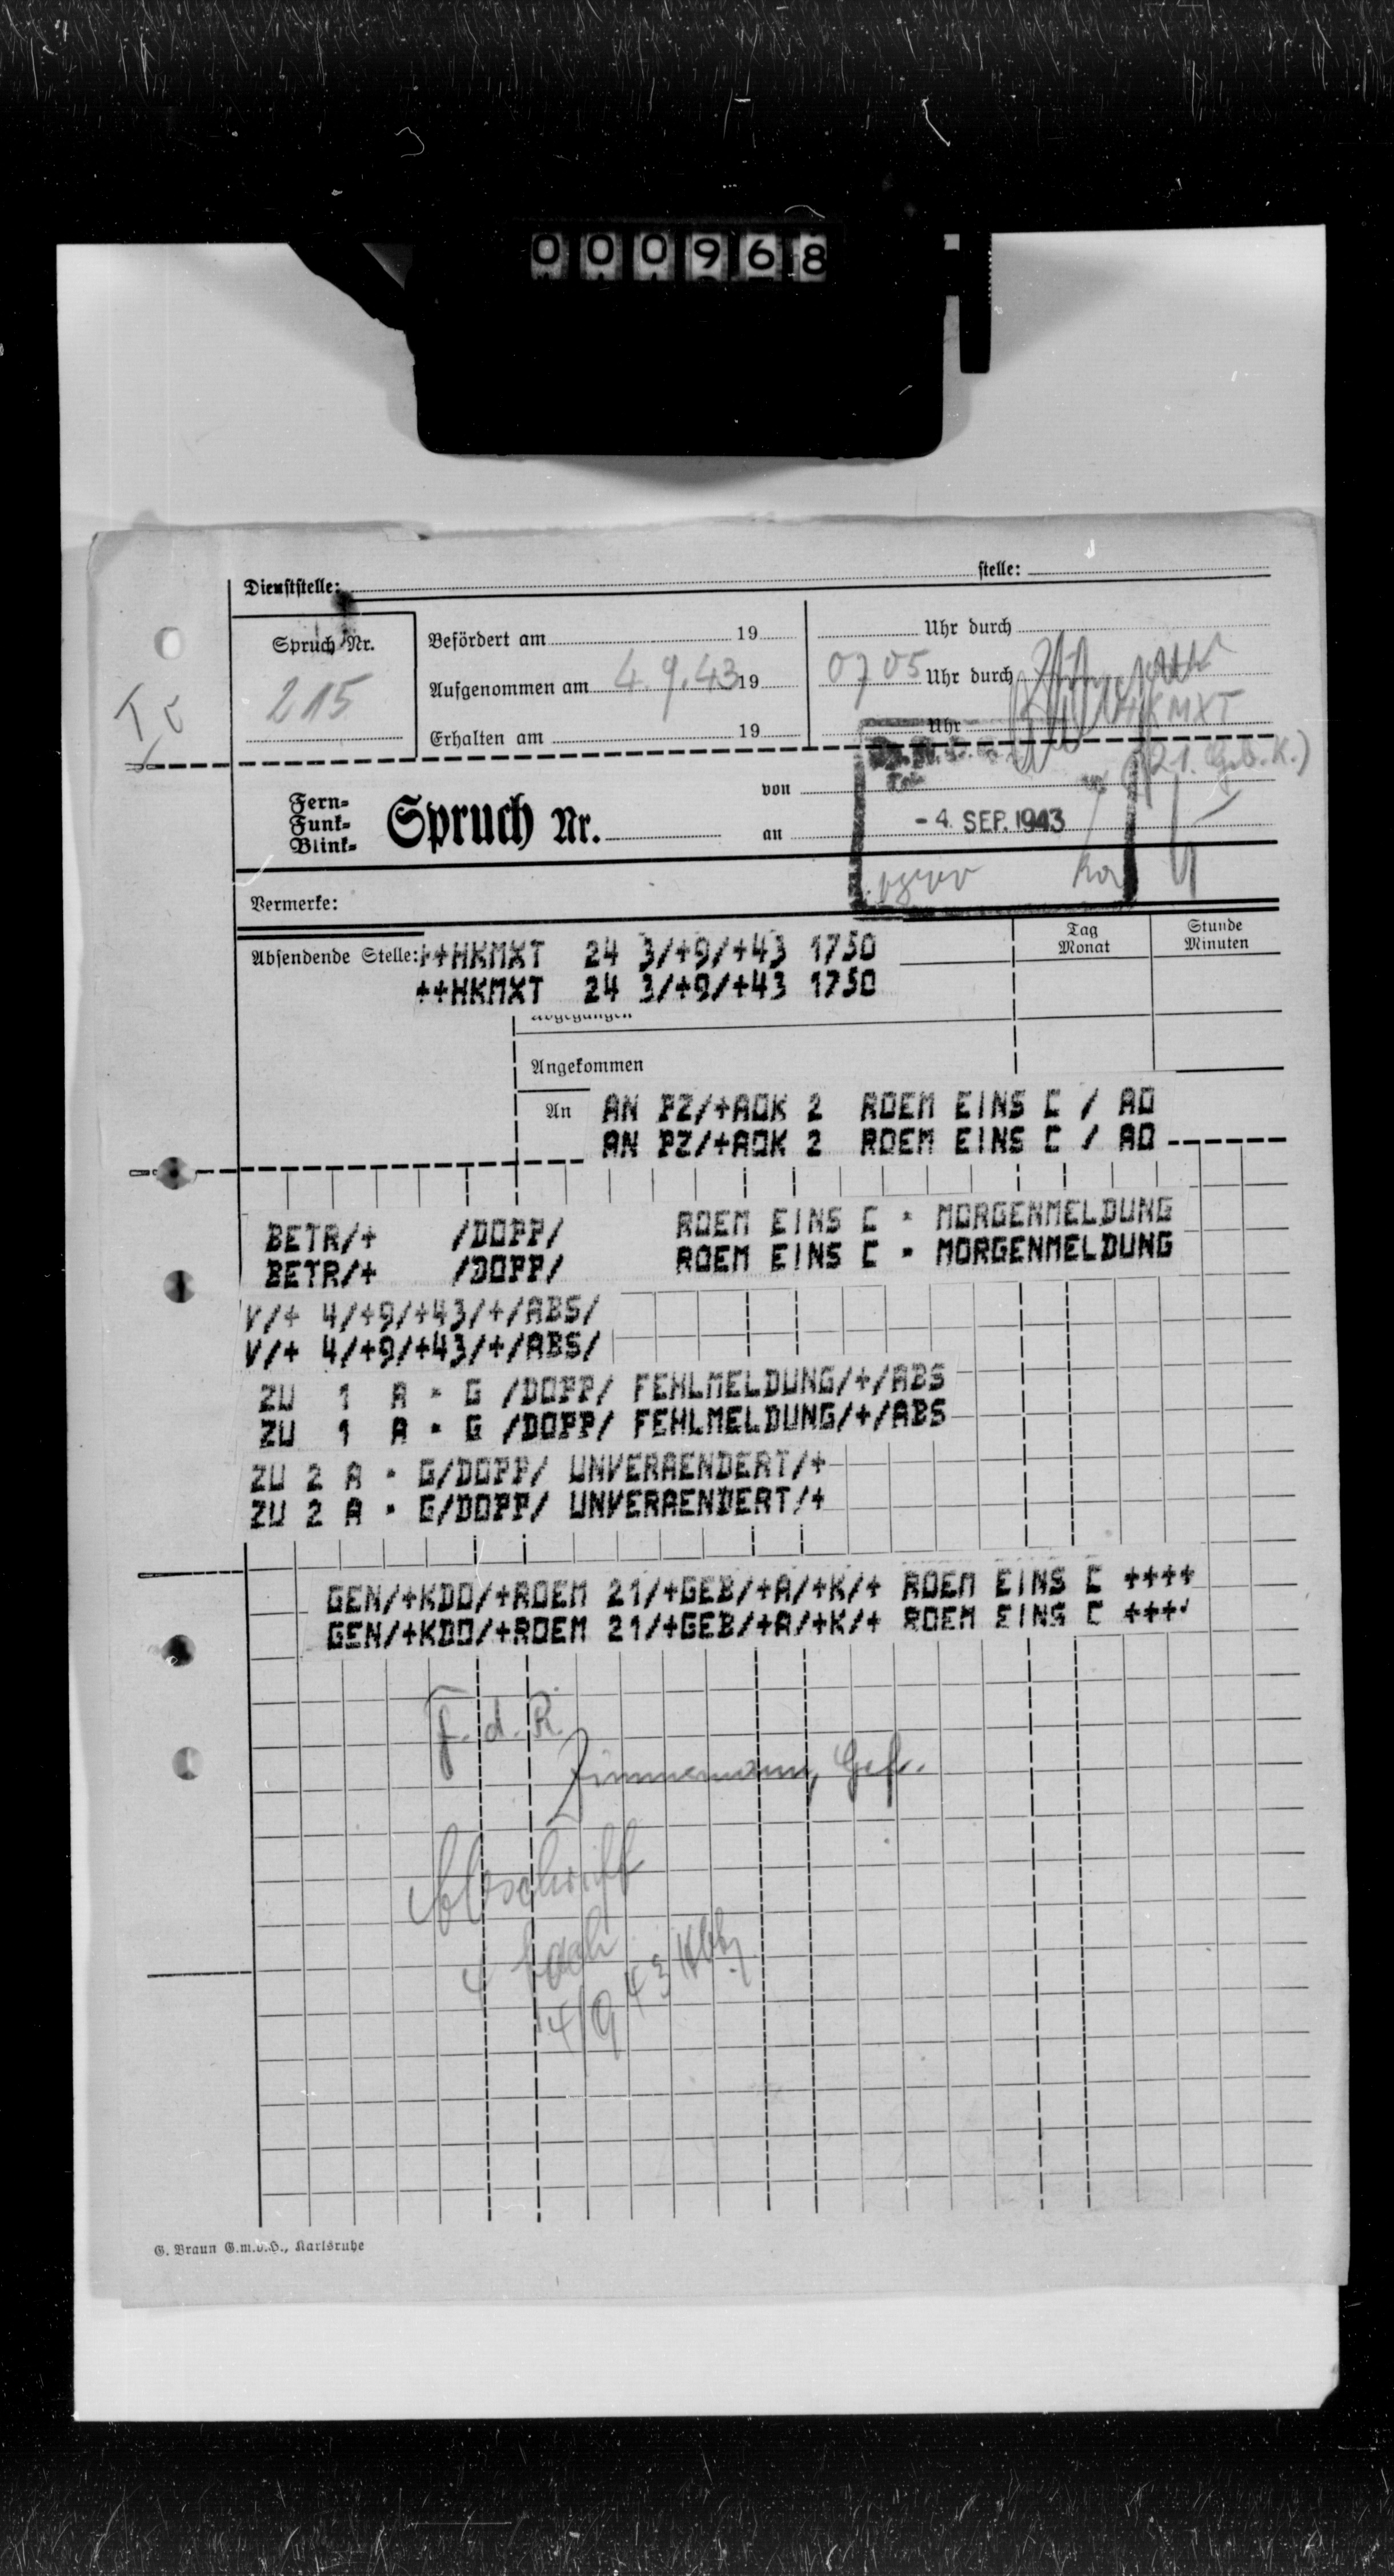 000968
Dienststelle: stelle:
Spruch Nr.
215
Befördert am 19 Uhr durch
Aufgenommen am 4.9.43 19 0705 Uhr durch
Erhalten am 19 Uhr HKMXT
(21. Geb. K.)
Fern-
Funk-
Blink-
Spruch Nr.
von
an
- 4. SEP. 1943
Vermerke:
Absendende Stelle: ++HKMXT 24 3/+9/+43 1750
++HKMXT 24 3/+9/+43 1750
Tag
Monat
Stunde
Minuten
Abgegangen
Angekommen
An AN PZ/+AOK 2 ROEM EINS C / AO
AN PZ/+AOK 2 ROEM EINS C / AO
BETR/+ /DOPP/ ROEM EINS C - MORGENMELDUNG
BETR/+ /DOPP/ ROEM EINS C - MORGENMELDUNG
V/+ 4/+9/+43/+/ABS/
V/+ 4/+9/+43/+/ABS/
ZU 1 A - G /DOPP/ FEHLMELDUNG/+/ABS
ZU 1 A - G /DOPP/ FEHLMELDUNG/+/ABS
ZU 2 A - G/DOPP/ UNVERAENDERT/+
ZU 2 A - G/DOPP/ UNVERAENDERT/+
GEN/+KDO/+ROEM 21/+GEB/+A/+K/+ ROEM EINS C ++++
GEN/+KDO/+ROEM 21/+GEB/+A/+K/+ ROEM EINS C ++++
F. d. R.
Zimmermann, Gefr.
Abschrift
4 fach
4/9 43
G. Braun G.m.b.H., Karlsruhe